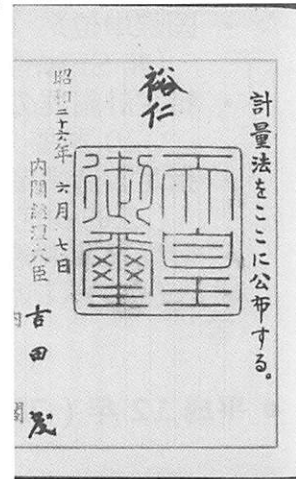 計量法をここに公布する。
裕仁
天皇
御璽
昭和二十六年六月七日
内閣総理大臣 吉田茂